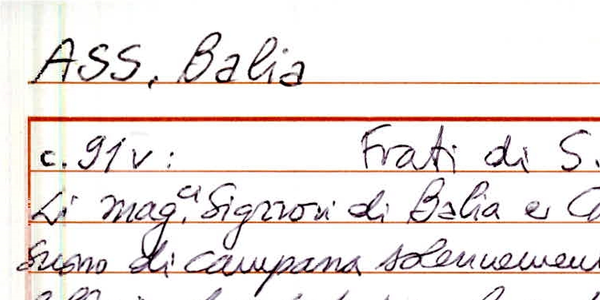 ASS, Balia
c. 91v: Frati di S.
Li mag.ci Signori di Balia e
suono di campana